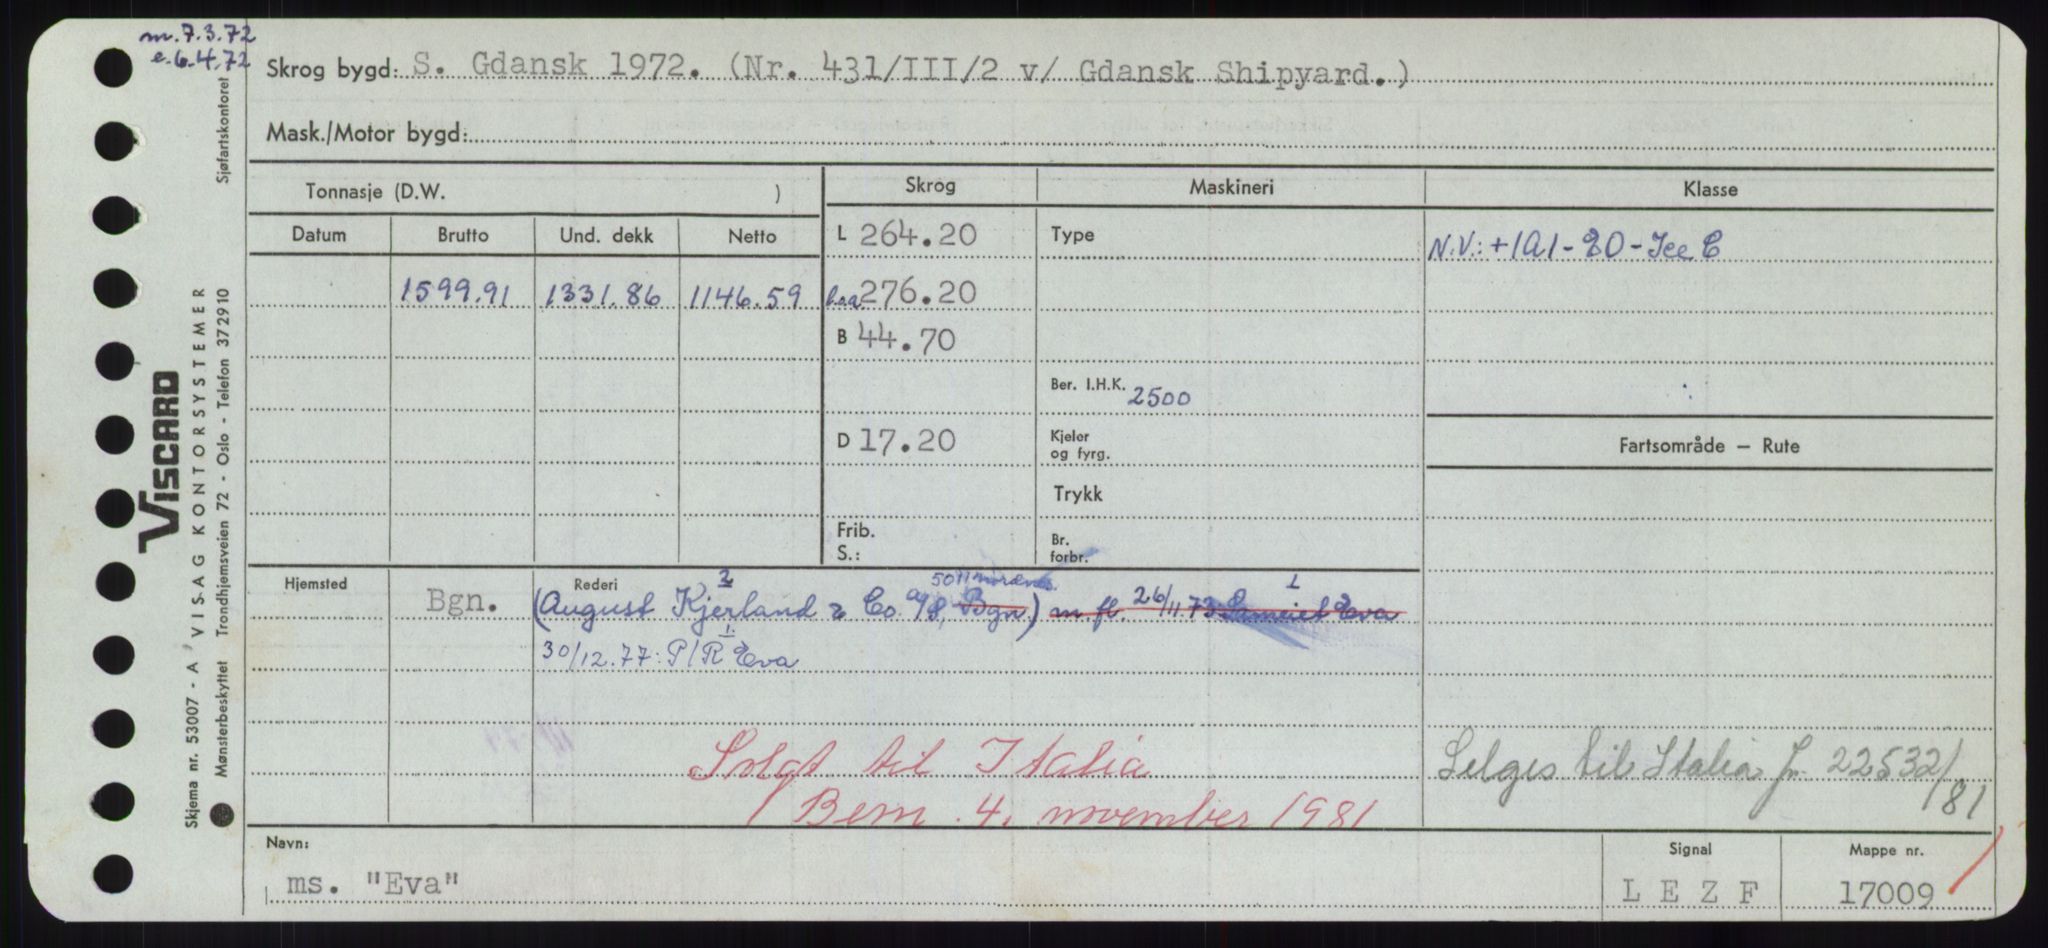 m.7.3.72
e.6.4.72
Skrog bygd: S. Gdansk 1972. (Nr. 431/III/2 v/ Gdansk Shipyard.)
Mask./Motor bygd:
Tonnasje (D.W. )
Skrog
Maskineri
Klasse
Datum Brutto Und. dekk Netto
L 264.20
Type
N.V.: +1A1-EO-Ice C
1599.91 1331.86 1146.59
loa 276.20
B 44.70
Ber. I.H.K. 2500
D 17.20
Kjeler
og fyrg.
Fartsområde — Rute
Trykk
Frib.
S.:
Br.
forbr.
Hjemsted
Bgn.
Rederi
2
1
(August Kjerland & Co. A/S, Bgn) m. fl. 26/11.73 Sameiet Eva
1.
30/12.77: P/R Eva
Solgt til Italia
Bem 4. november 1981
Selges til Italia Jn 22532/81
Navn:
ms. "Eva"
Signal
L E Z F
Mappe nr.
17009
Sjøfartskontoret
VISCARD
Skjema nr. 53007 - A VISAG KONTORSYSTEMER
Mønsterbeskyttet Trondhjemsveien 72 - Oslo - Telefon 372910